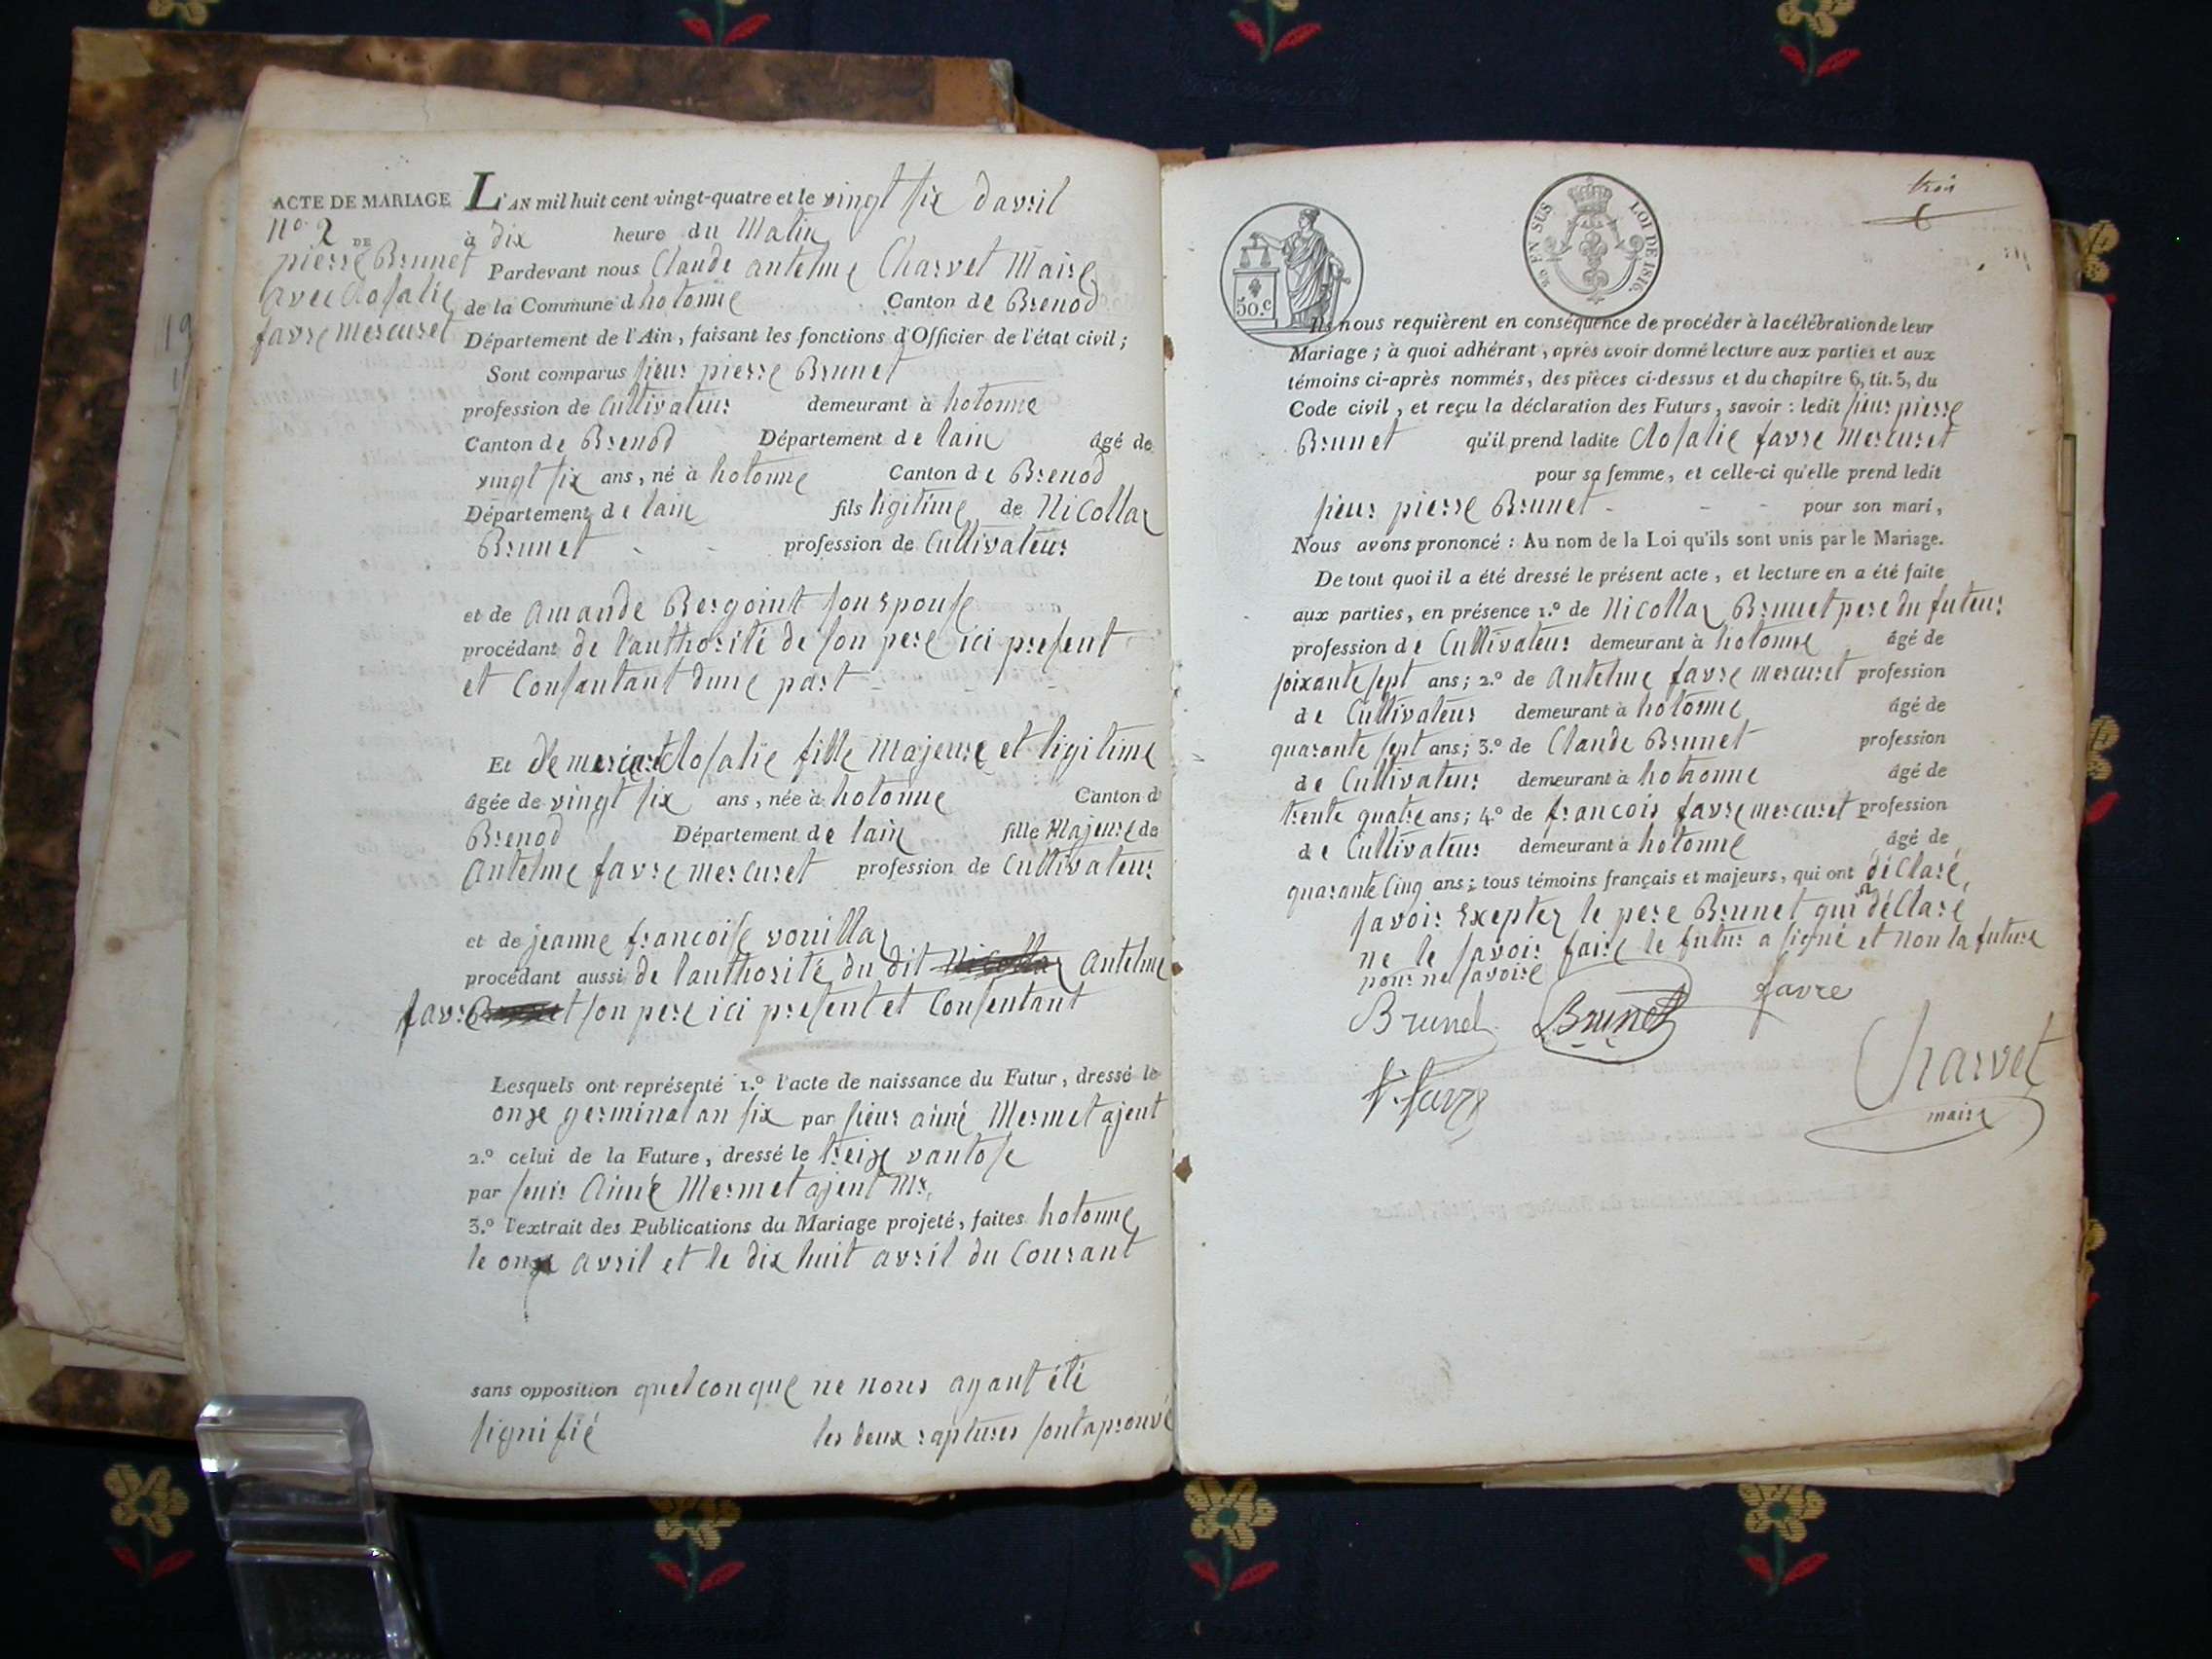 ACTE DE MARIAGE
nº 2
DE
pierre Brunet
avec Rosalie
favre mercuret
L'AN mil huit cent vingt-quatre et le vingt six davril
à dix heure du Matin
Pardevant nous Claude antelme Charvet Maire
de la Commune d hotonne Canton de Brenod
Département de l'Ain, faisant les fonctions d'Officier de l'état civil;
Sont comparus sieur pierre Brunet
profession de Cultivateur demeurant à hotonne
Canton de Brenod Département de lain âgé de
vingt six ans, né à hotonne Canton de Brenod
Département de lain fils ligitime de Nicollaz
Brunet - - profession de Cultivateur
et de amande Bergoint son Epouse
procédant de l'authorité de son pere ici present
et Consantant dune part
Et Rosalie fille Majeure et ligitime
âgée de vingt six ans, née à hotonne Canton d
Brenod Département de lain fille Majeure de
Antelme favre mercuret profession de Cultivateur
et de jeanne francoise vouillaz
procédant aussi de l'authorité du dit Nicollaz Antelme
favre Brunet son pere ici present et Consentant
Lesquels ont représenté 1.º l'acte de naissance du Futur, dressé le
onze germinal an six par sieur aimé Mermet ajent
2.º celui de la Future, dressé le treize vantose
par Aimé Mermet ajent
3.º l'extrait des Publications du Mariage projeté, faites hotonne
le onze avril et le dix huit avril du Courant
sans opposition quelconque ne nous ayant été
signifié les deux raptures sont aprouvé
50.c
25 EN SUS LOI DE 1816.
trois
Ils nous requièrent en conséquence de procéder à la célébration de leur
Mariage; à quoi adhérant, après avoir donné lecture aux parties et aux
témoins ci-après nommés, des pièces ci-dessus et du chapitre 6, tit. 5, du
Code civil, et reçu la déclaration des Futurs, savoir : ledit sieur pierre
Brunet qu'il prend ladite Rosalie favre Mercuret
pour sa femme, et celle-ci qu'elle prend ledit
sieur pierre Brunet - - - pour son mari,
Nous avons prononcé : Au nom de la Loi qu'ils sont unis par le Mariage.
De tout quoi il a été dressé le présent acte, et lecture en a été faite
aux parties, en présence 1.º de Nicollaz Brunet pere du futeur
profession de Cultivateur demeurant à hotonne âgé de
soixante sept ans; 2.º de Antelme favre mercuret profession
de Cultivateur demeurant à hotonne âgé de
quarante sept ans; 3.º de Claude Brunet profession
de Cultivateur demeurant à hotonne âgé de
trente quatre ans; 4.º de francois favre mercuret profession
de Cultivateur demeurant à hotonne âgé de
quarante Cinq ans; tous témoins français et majeurs, qui ont déclaré
savoir Exepter le pere Brunet qui a déclaré
ne le savoir faire le futur a signé et non la future
pour ne savoire
Brunet Brunet favre
f. favre
Charvet
maire